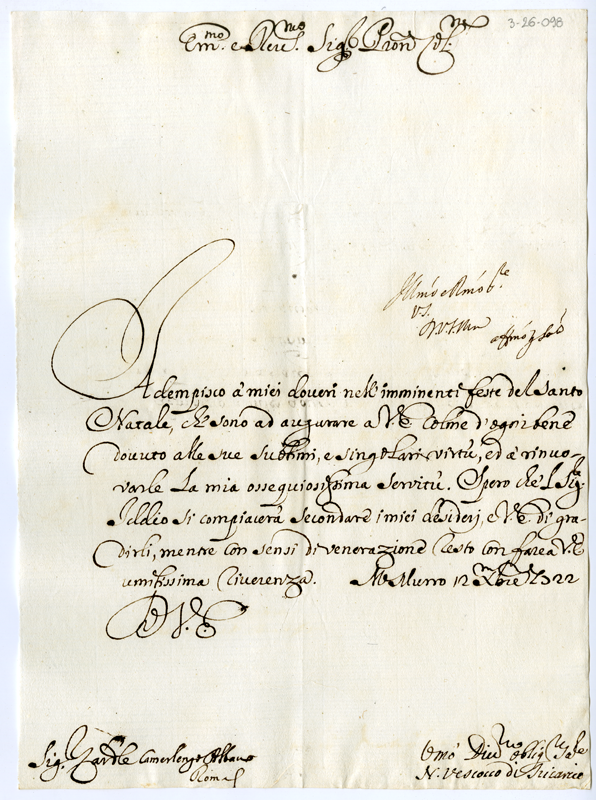 3-26-098
Em.mo e Rev.mo Sig.re Pron Col.mo
Ill.mo e R.mo
V.S.
D V.S. Ill.ma
aff.mo
Adempisco à miei doveri nell'imminenti feste del Santo
Natale, che sono ad augurare a V.E. colme d'ogni bene
dovuto alle sue sublimi, e singolari virtù, ed à rinuo-
varle la mia ossequiosissima servitù. Spero che 'l Sig.re
Iddio si compiacerà secondare i miei desiderj, e V.E. di gra-
dirli, mentre con sensi di venerazione resto con farea V.E.
umilissima riverenza. M. Murro 12 Xbre 1722
D V.E.
Sig.r Card.le Camerlengo Albano
Roma
Um.o Div.mo oblig.mo Se.re
N. Vescovo di Tricarico